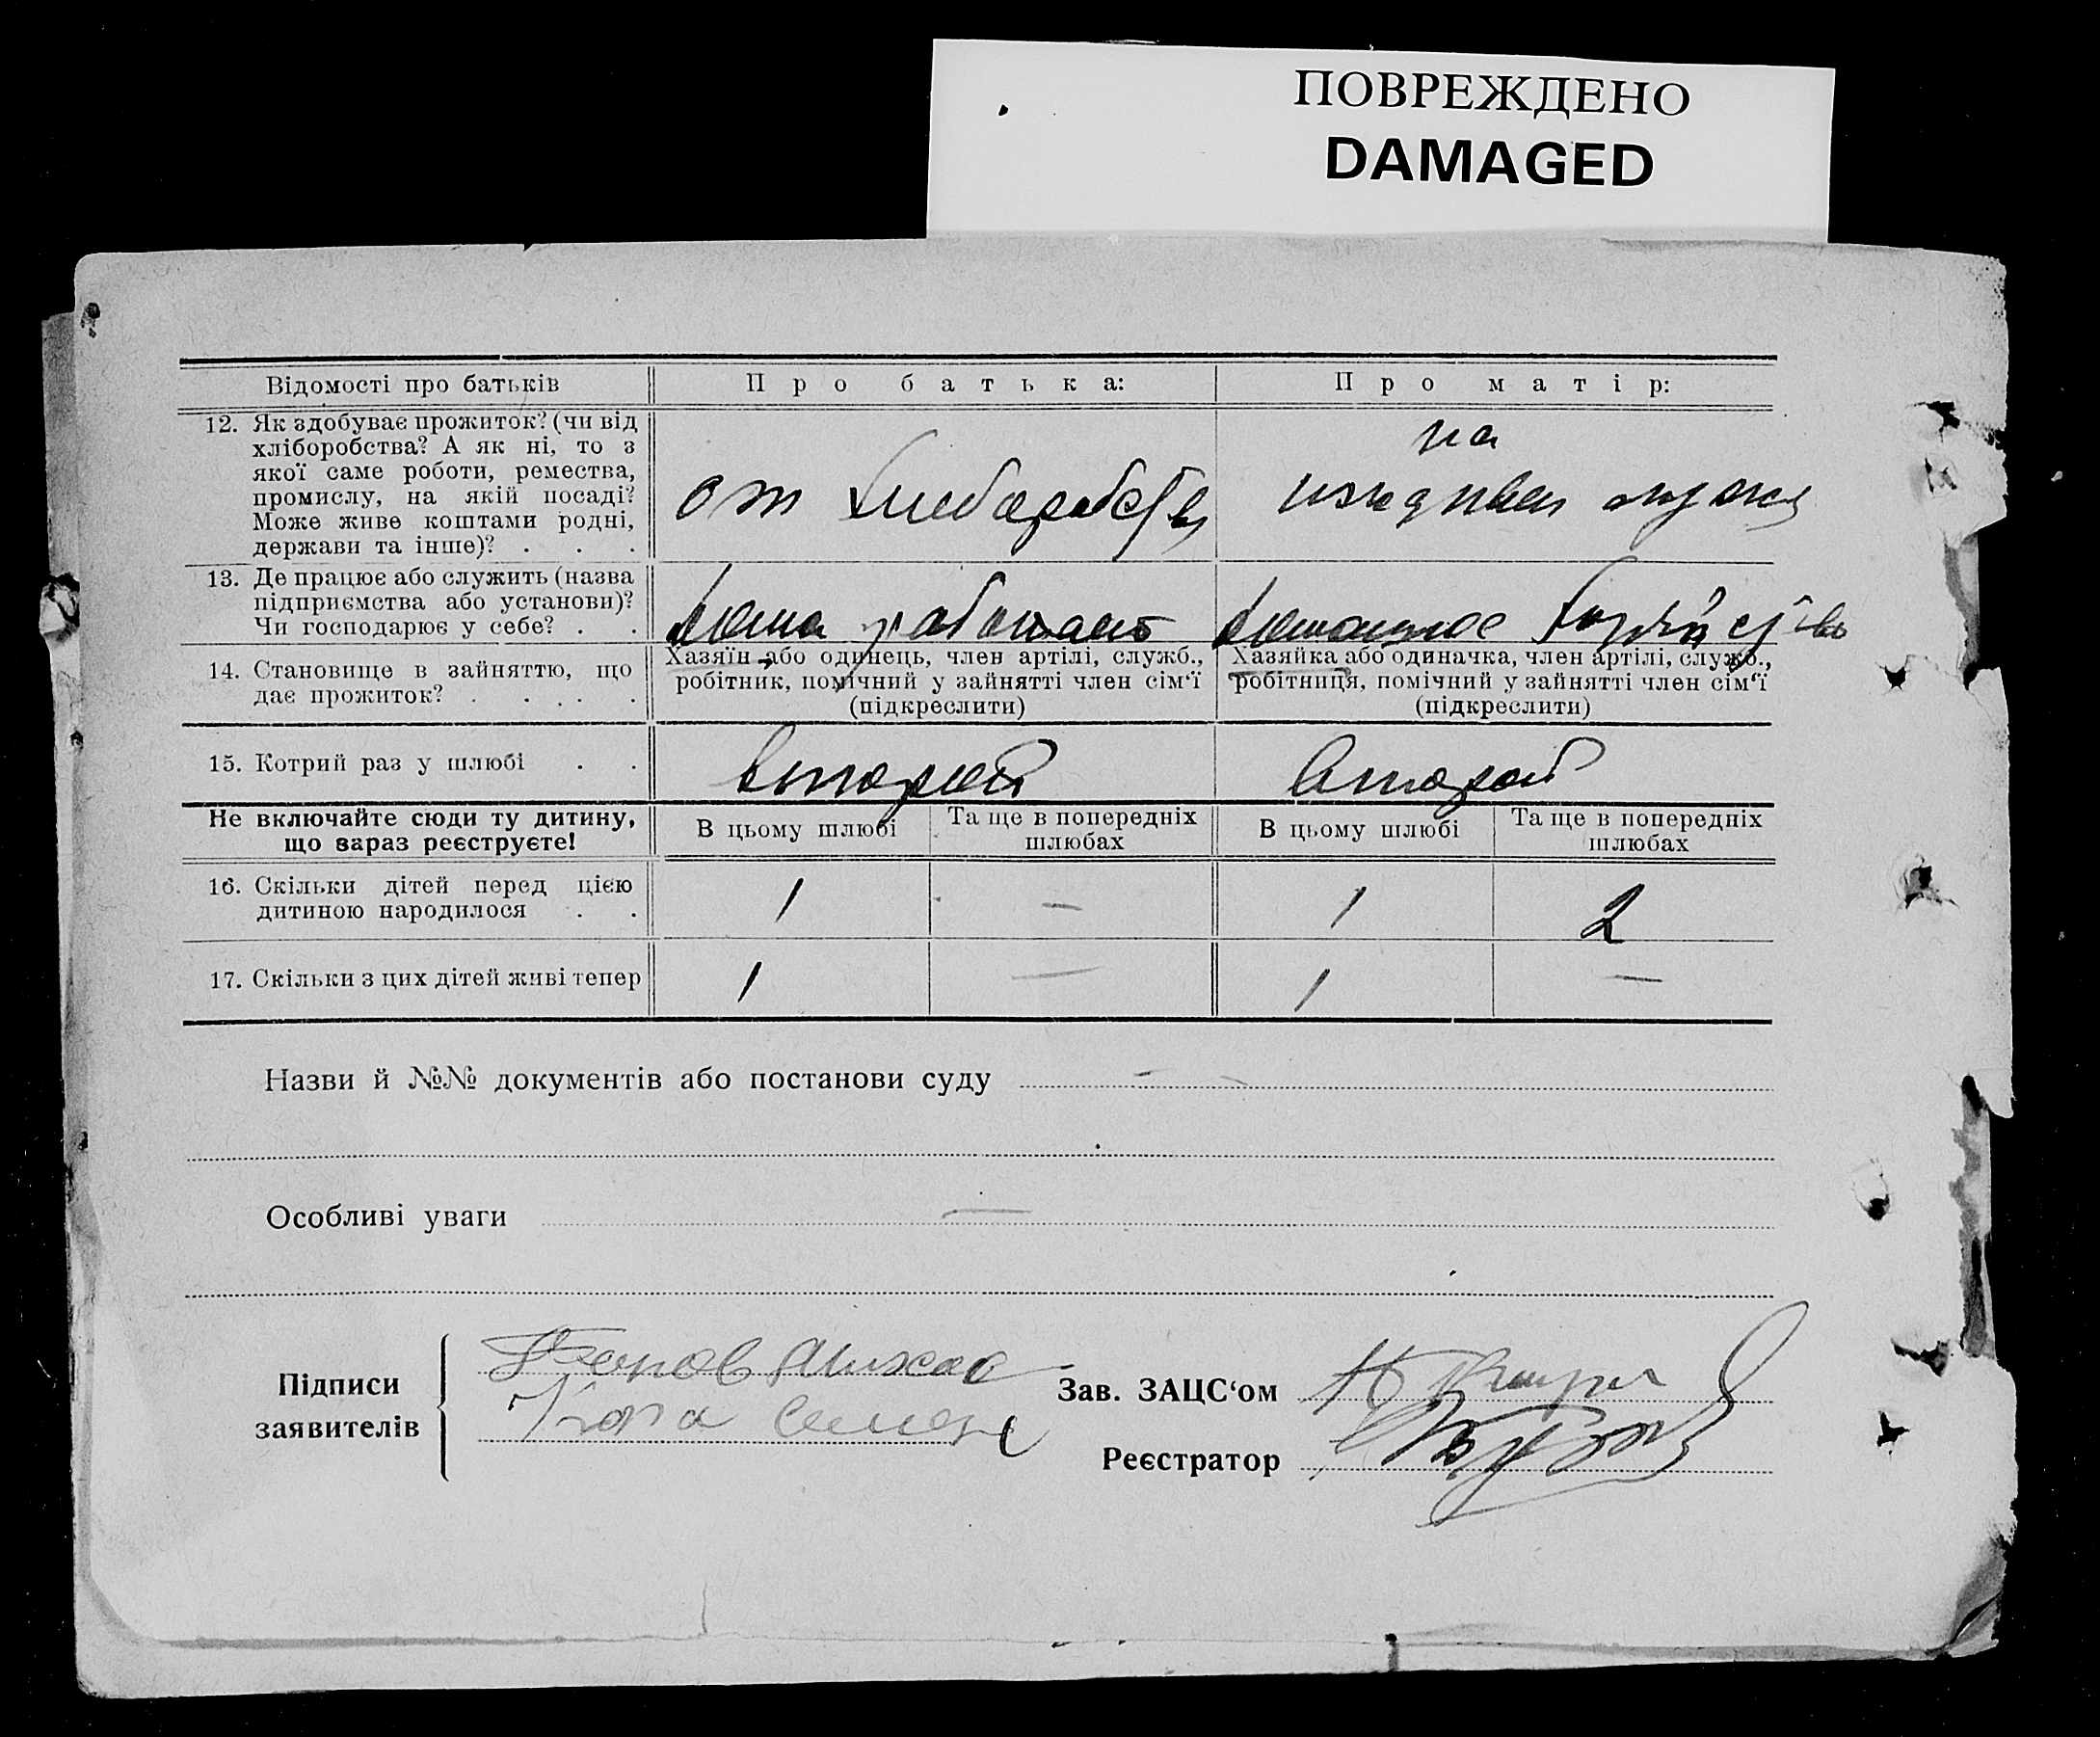 ПОВРЕЖДЕНО
DAMAGED
Відомості про батьків
Про батька:
Про матір:
12. Як здобуває прожиток? (чи від
хліборобства? А як ні, то з
якої саме роботи, ремества,
промислу, на якій посаді?
Може живе коштами родні,
держави та інше)? . . .
от
на
мужа
13. Де працює або служить (назва
підприємства або установи)?
Чи господарює у себе? . .
дома работает
домашное
14. Становище в зайняттю, що
дає прожиток? . . . . .
Хазяїн або одинець, член артілі, служб.,
робітник, помічний у зайнятті член сім‘ї
(підкреслити)
Хазяйка або одиначка, член артілі, служб.,
робітниця, помічний у зайнятті член сім‘ї
(підкреслити)
15. Котрий раз у шлюбі . .
второй
второй
Не включайте сюди ту дитину,
що зараз реєструєте!
В цьому шлюбі
Та ще в попередніх
шлюбах
В цьому шлюбі
Та ще в попередніх
шлюбах
16. Скільки дітей перед цією
дитиною народилося . .
1
—
1
2
17. Скільки з цих дітей живі тепер
1
—
1
—
Назви й №№ документів або постанови суду - -
Особливі уваги —
Підписи
заявителів
Зав. ЗАЦС‘ом
Реєстратор